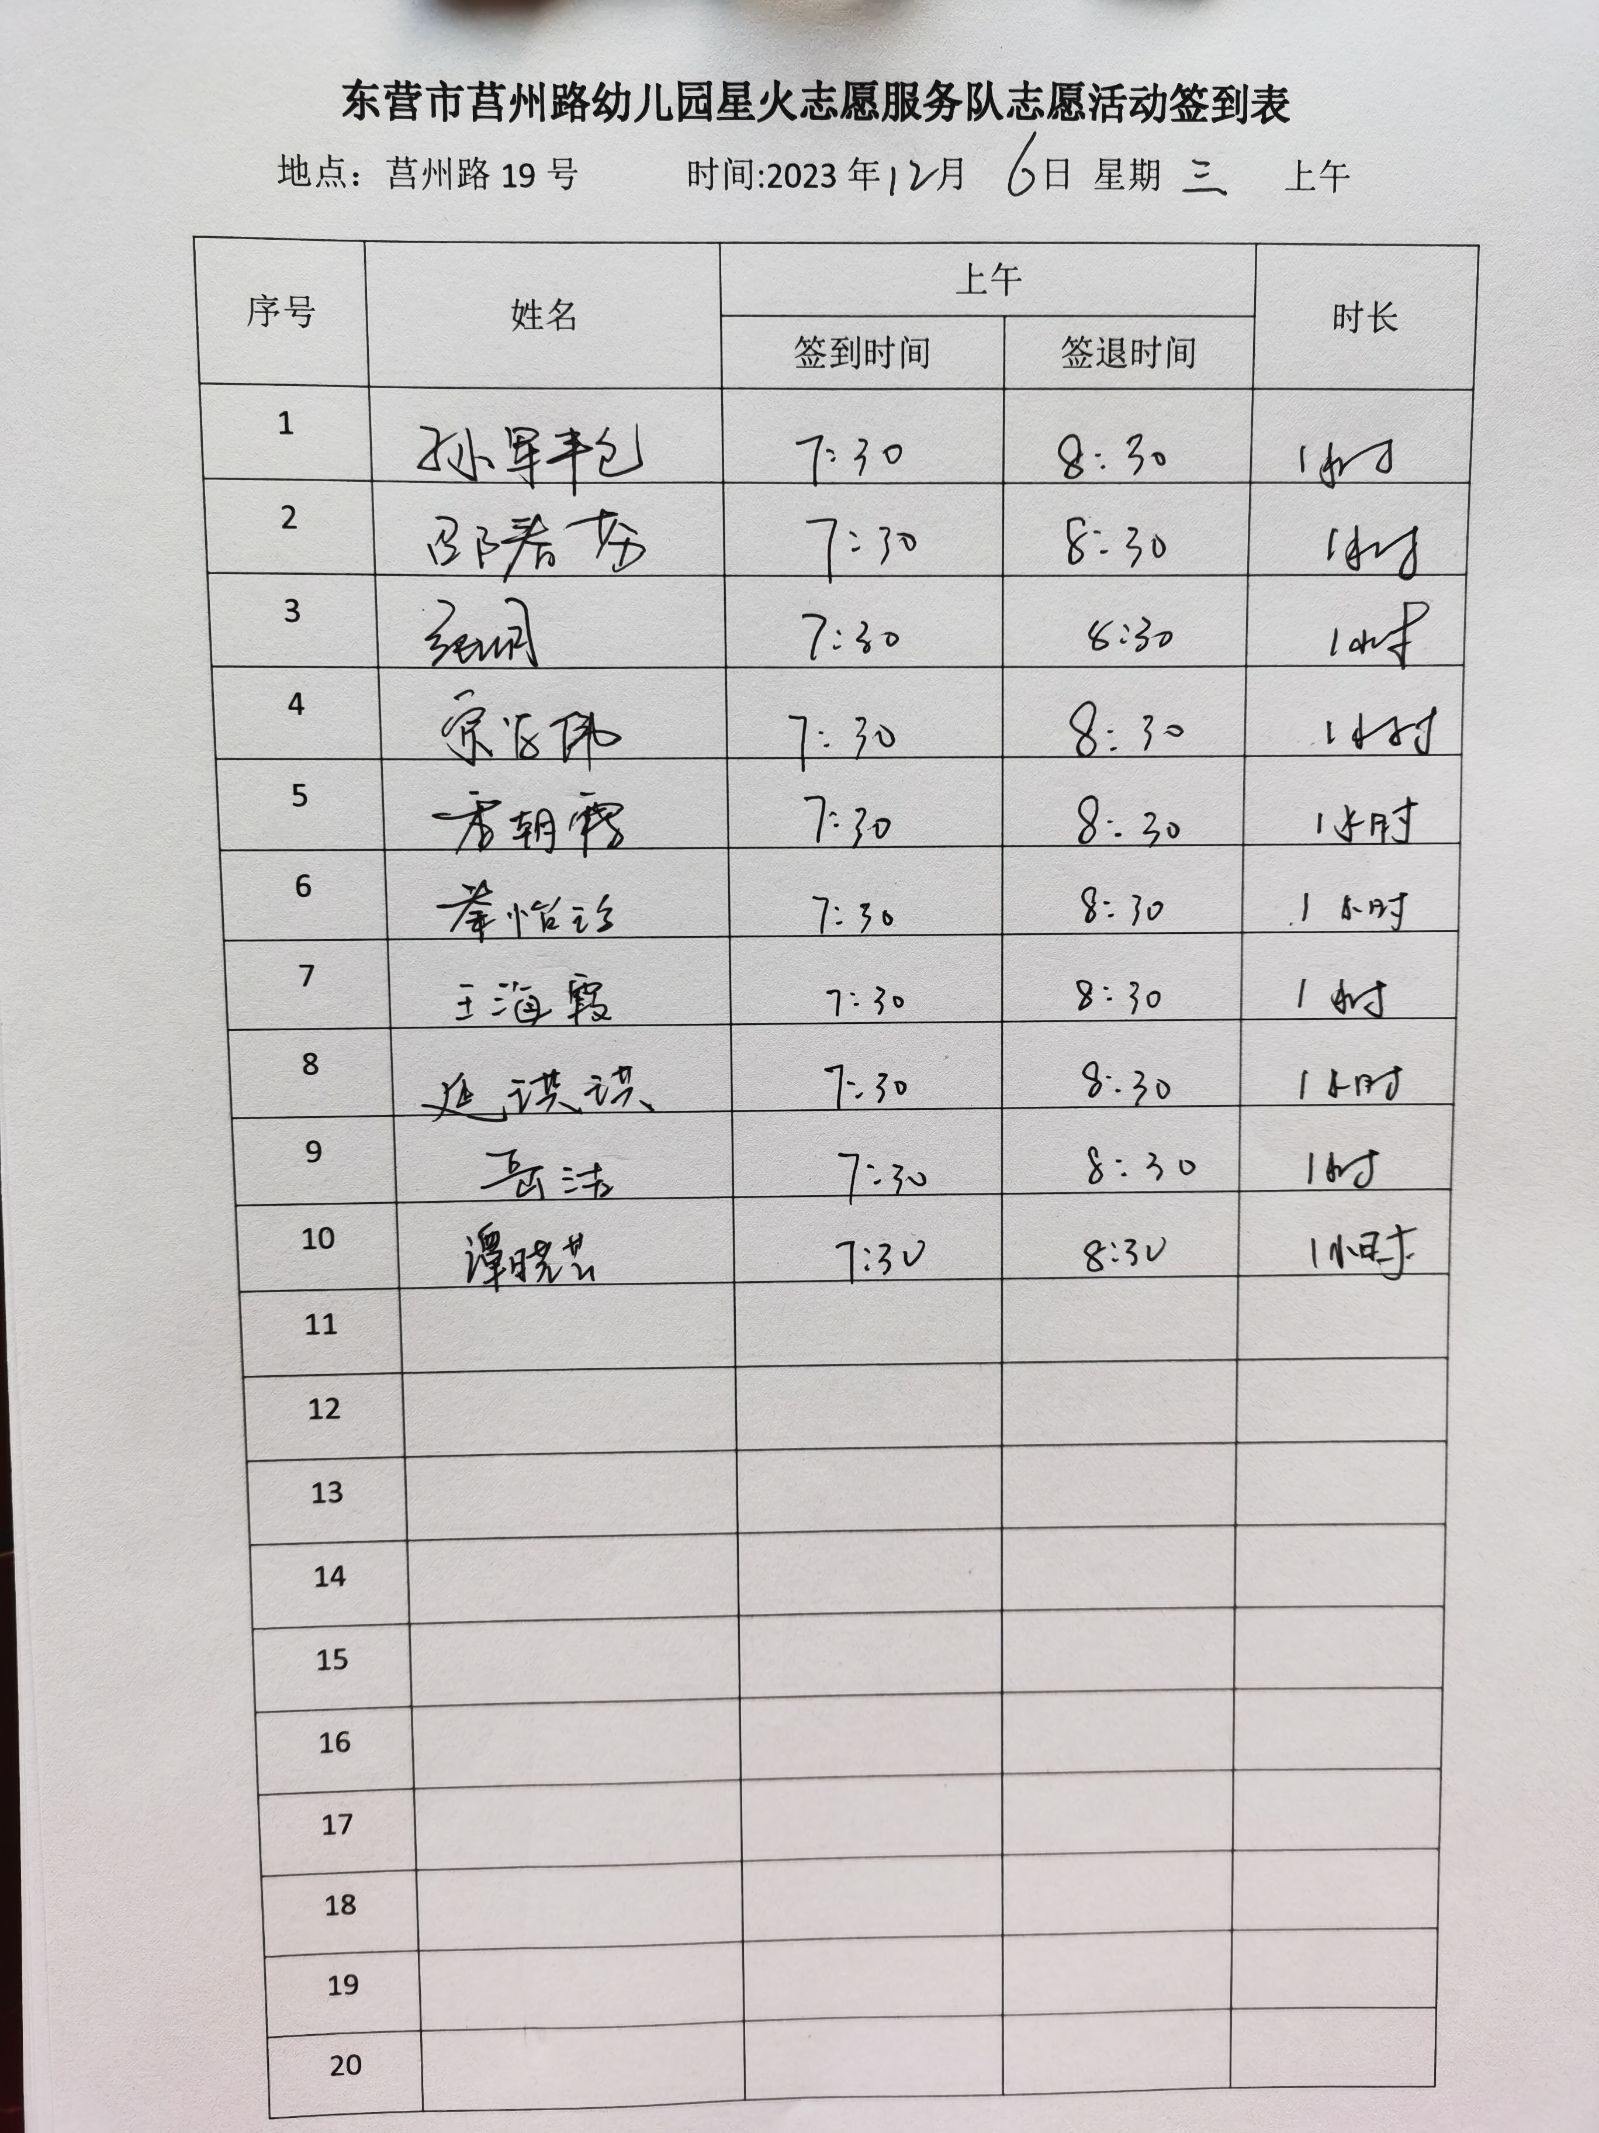 东营市莒州路幼儿园星火志愿服务队志愿活动签到表
地点：莒州路 19 号 时间:2023 年 12 月 6 日 星期 三 上午
序号 姓名 上午 时长
签到时间 签退时间
1 孙军 7:30 8:30 1小时
2 邵春 7:30 8:30 1小时
3 7:30 8:30 1小时
4 7:30 8:30 1小时
5 朝霞 7:30 8:30 1小时
6 怡 7:30 8:30 1小时
7 王海霞 7:30 8:30 1小时
8 7:30 8:30 1小时
9 岳洁 7:30 8:30 1小时
10 谭晓芸 7:30 8:30 1小时
11
12
13
14
15
16
17
18
19
20